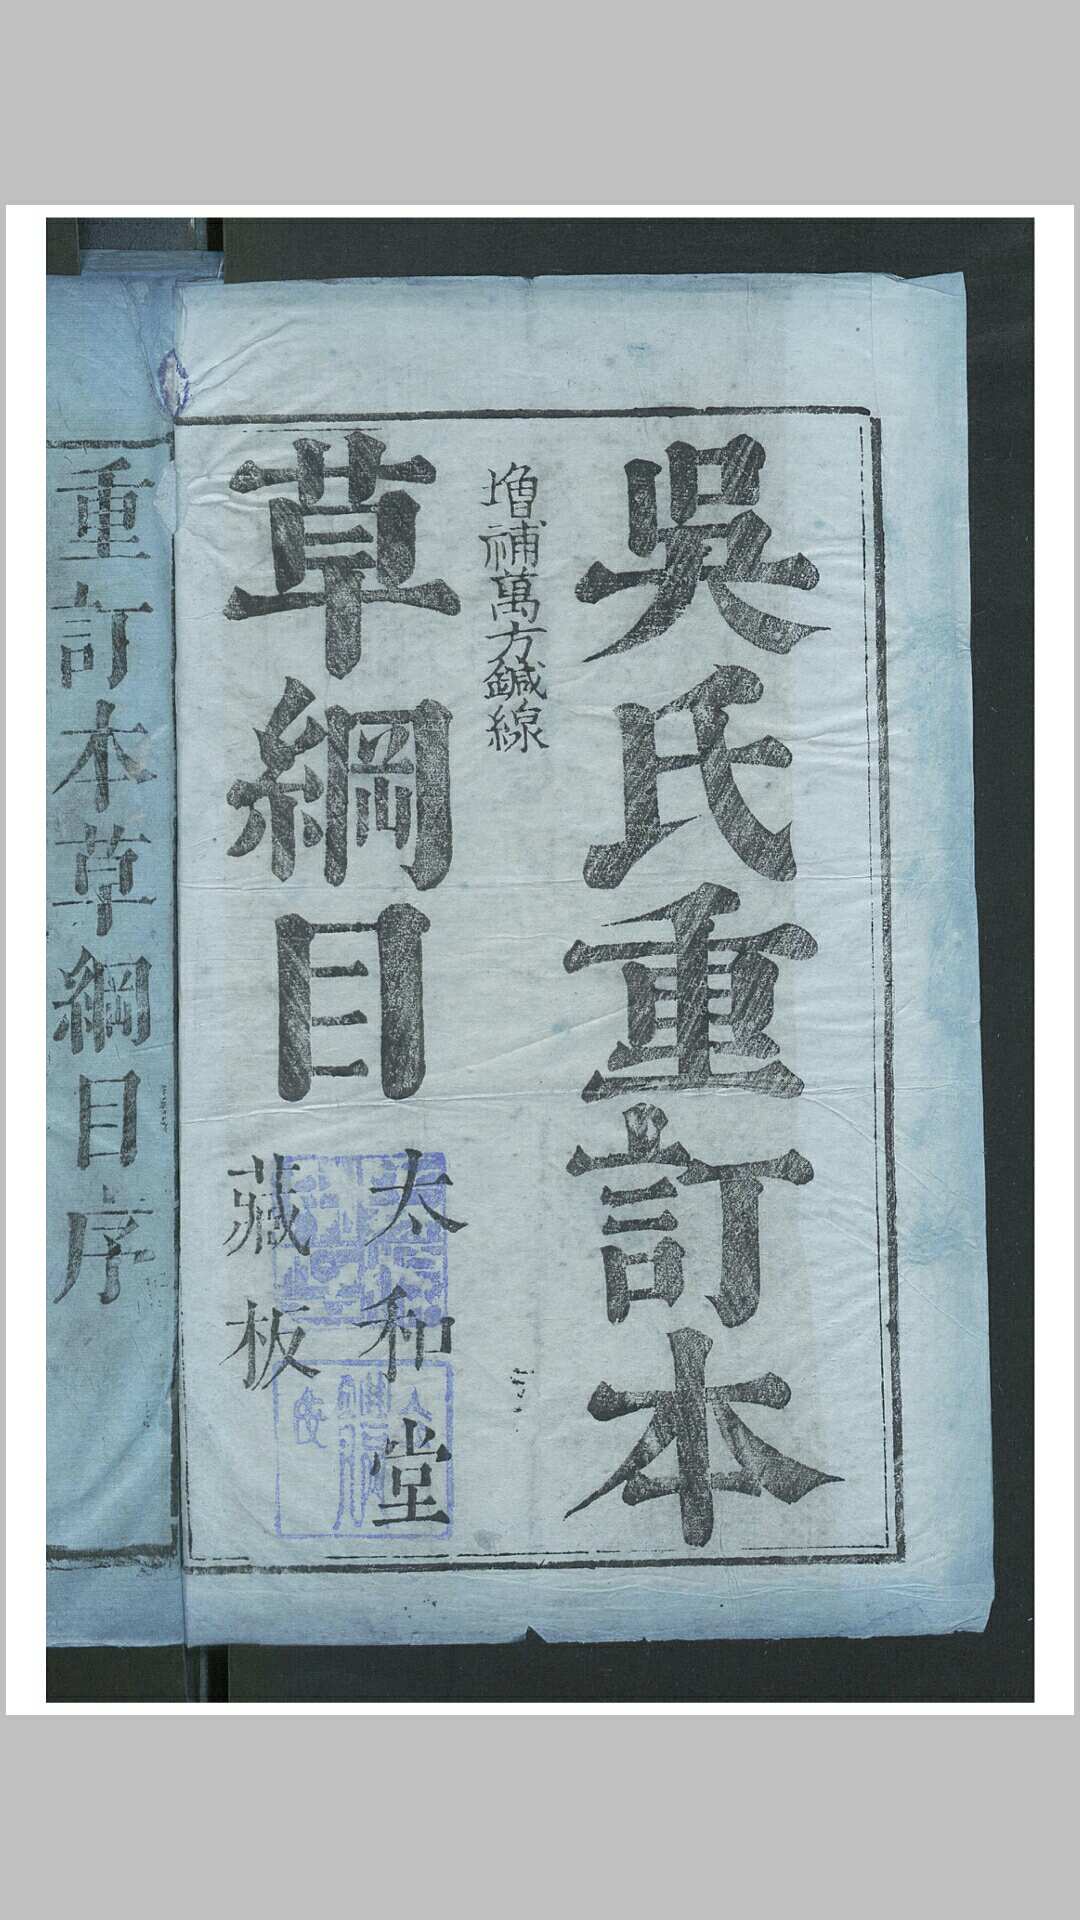 吳氏重訂本
増補萬方鍼線
草綱目
太和堂
藏板
重訂本草綱目序